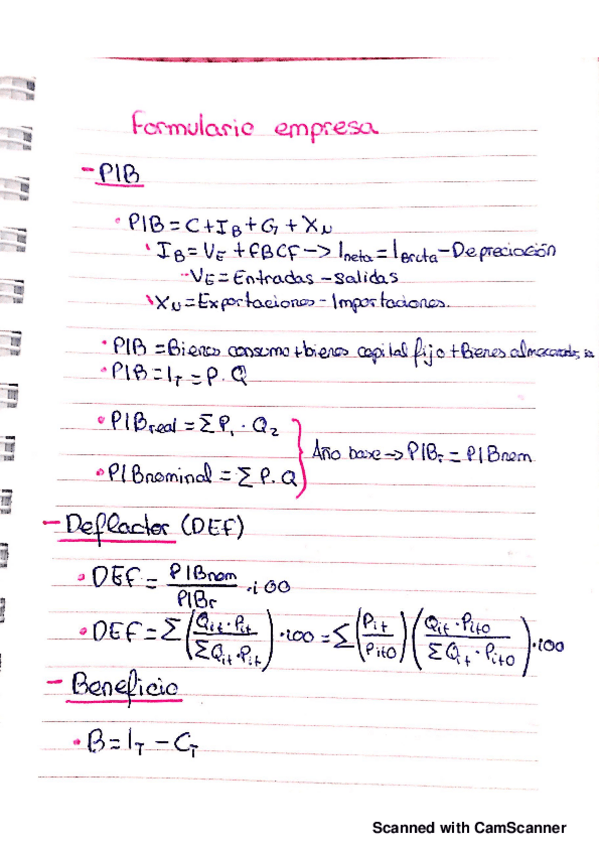 Formulario empresa
- PIB
• PIB = C + I_B + G + X_N
I_B = V_E + FBCF -> I_neta = I_Bruta - Depreciación
- V_E = Entradas - Salidas
X_N = Exportaciones - Importaciones.
• PIB = Bienes consumo + bienes capital fijo + Bienes almacenados,
• PIB = I_T = P. Q
• PIB_real = Σ P_1 · Q_2
Año base -> PIB_r = PIBnom
• PIBnominal = Σ P. Q
- Deflactor (DEF)
• DEF = PIBnom / PIB_r · 100
• DEF = Σ (Q_it · P_it / Σ Q_it · P_it) · 100 = Σ (P_it / P_it0) (Q_it · P_it0 / Σ Q_it · P_it0) · 100
- Beneficio
• B = I_T - C_T
Scanned with CamScanner